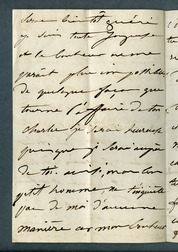 serai bientôt guéri
je suis toute joyeuse
de le bonheur ne me
parait plus impossible
de quelque façon que
tourne l'affaire de ton
Charles je serai heureuse
puisque je serai auprès
de toi, ainsi, mon bon
petit homme, ne t'inquiète
pas de moi d'aucune
manière car mon bonheur